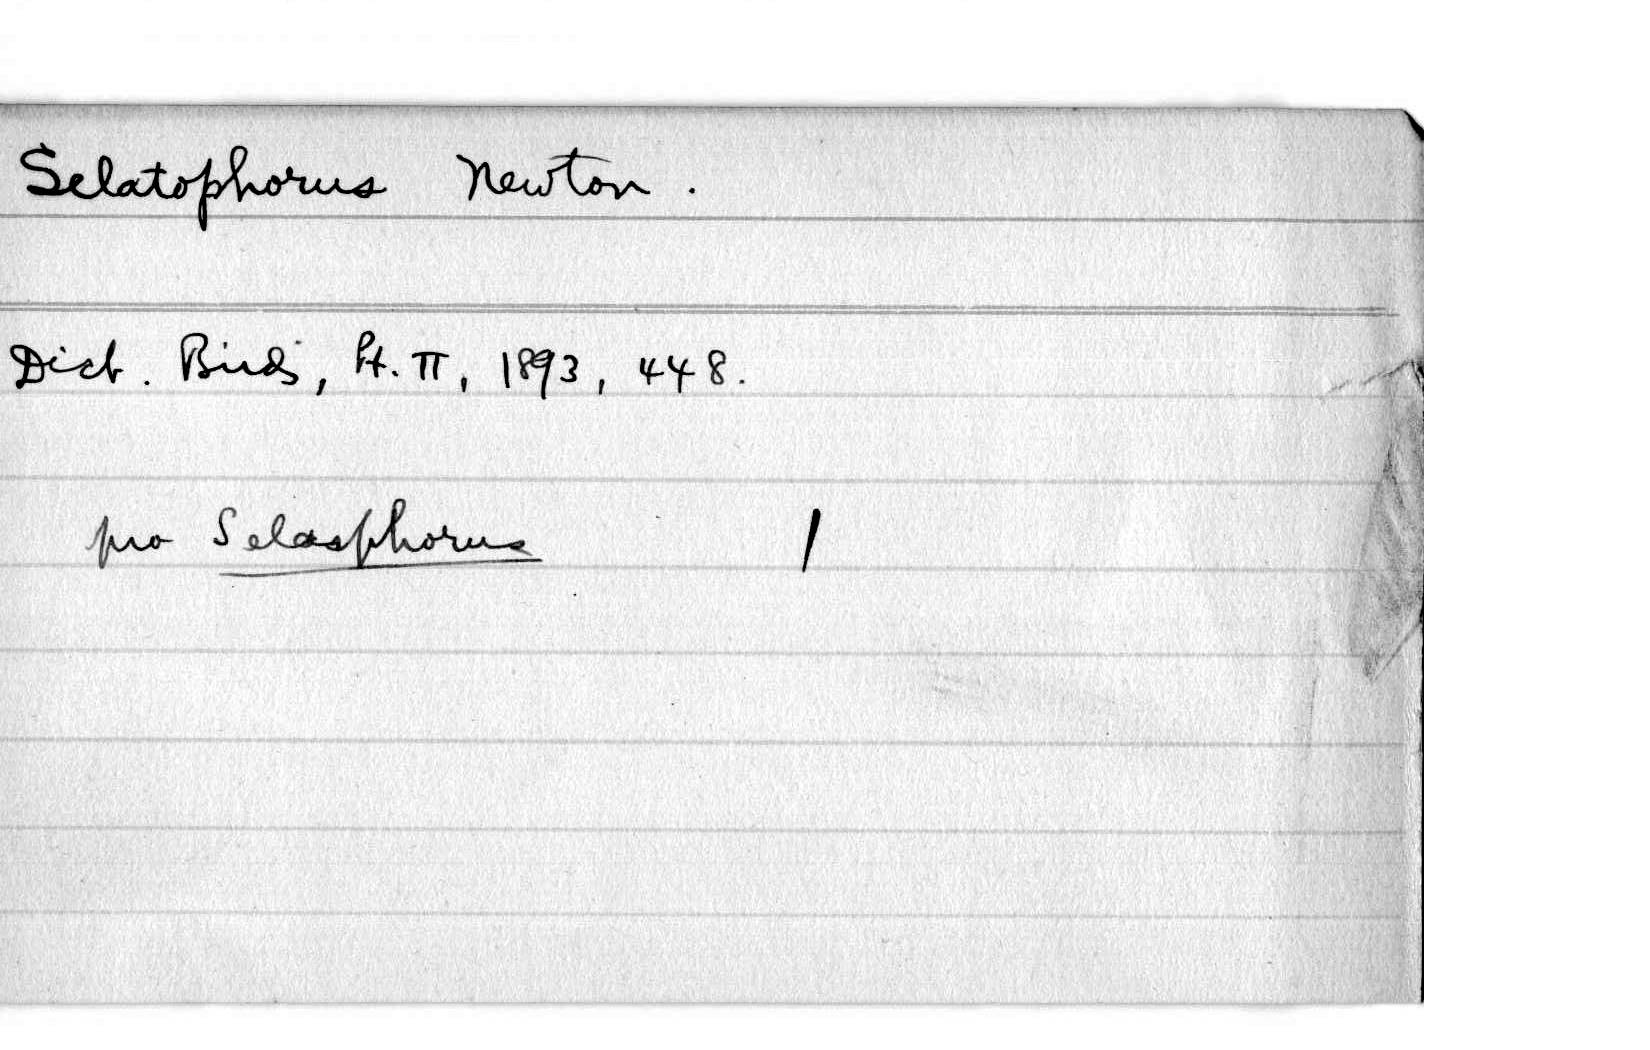 Selatophorus Newton.
Dict. Birds, Pt. II, 1893, 448.
pro Selasphorus /